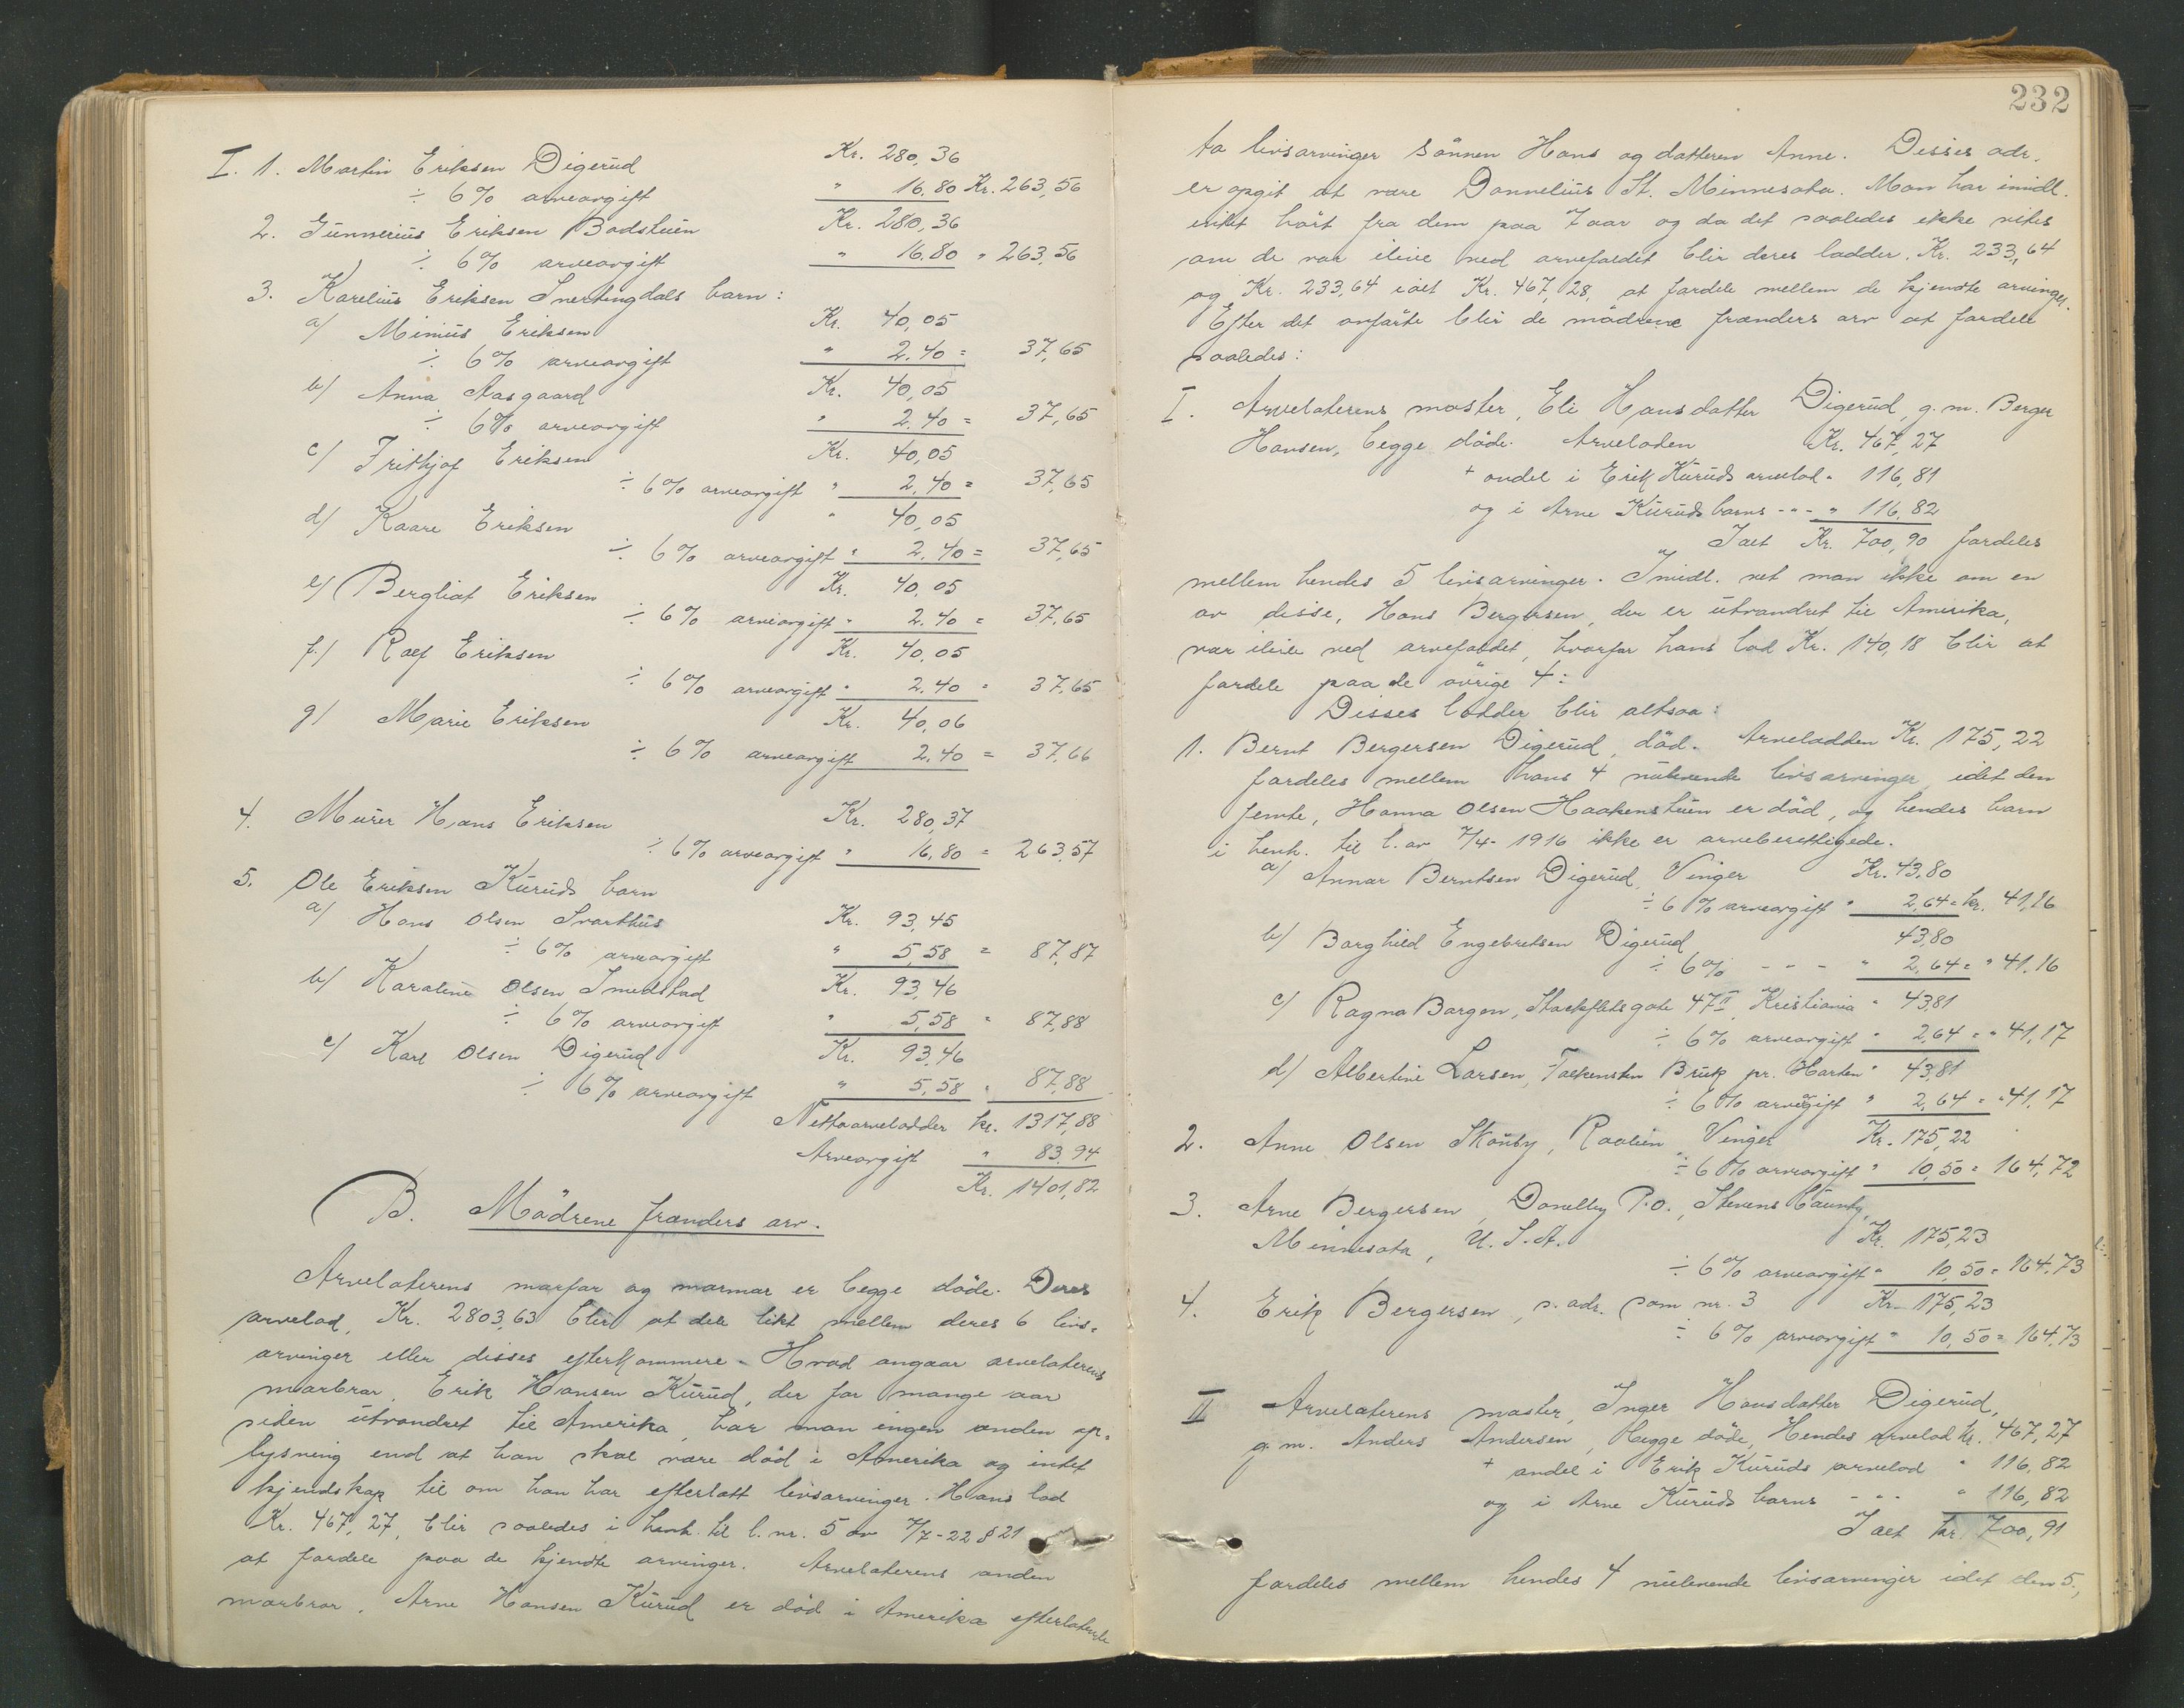 I. 1. Martin Eriksen Digerud Kr. 280,36
÷ 6% arveavgift " 16,80 Kr. 263,56
2. Gunnerius Eriksen Badstuen Kr. 280,36
÷ 6% arveavgift " 16,80 " 263,56
3. Karelius Eriksen Snertingdals barn:
a/ Minius Eriksen Kr. 40,05
÷ 6% arveavgift " 2.40 = 37,65
b/ Anna Aasgaard Kr. 40,05
÷ 6% arveavgift " 2.40 = 37,65
c/ Frithjof Eriksen Kr. 40,05
÷ 6% arveavgift " 2,40 = 37,65
d/ Kaare Eriksen " 40,05
÷ 6% arveavgift " 2.40 = 37,65
e/ Bergliot Eriksen Kr. 40,05
÷ 6% arveavgift " 2.40 = 37,65
f/ Rolf Eriksen Kr. 40,05
÷ 6% arveavgift " 2.40 = 37,65
g/ Marie Eriksen Kr. 40,06
÷ 6% arveavgift 2,40 = 37,66
4. Murer Hans Eriksen Kr. 280,37
÷ 6% arveavgift " 16,80 = 263,57
5. Ole Eriksen Kurüds barn
a/ Hans Olsen Svarthus Kr. 93,45
÷ 6% arveavgift " 5,58 = 87,87
b/ Karoline Olsen Smedstad Kr. 93,46
÷ 6% arveavgift " 5,58 " 87,88
c/ Karl Olsen Digerud Kr. 93,46
÷ 6% arveavgift " 5,58 " 87,88
Nettoarvelodder kr. 1317,88
Arveavgift " 83,94
Kr. 1401,82
B. Mödrene frænders arv.
Arvelaterens morfar og mormor er begge döde. Deres
arvelod, Kr. 2803,63 blir at dele likt mellem deres 6 livs-
arvinger eller disses efterkommere. Hvad angaar arvelaterens
morbror, Erik Hansen Kurud, der for mange aar
siden utvandret til Amerika, har man ingen anden op-
lysning end at han skal være död i Amerika og intet
kjendskap til om han har efterlatt livsarvinger. Hans lod
Kr. 467,27, blir saaledes i henh. til l. nr. 5 av 7/7-22 § 21
at fordele paa de kjendte arvinger. Arvelaterens anden
morbror, Arne Hansen Kurud er död i Amerika efterlatende
232
to livsarvinger Sönnen Hans og datteren Anne. Disses adr.
er opgit at være Donnelius St. Minnesota. Man har imidl.
intet hört fra dem paa 7 aar og da det saaledes ikke vites
om de var ilive ved arvefaldet blir deres lodder, Kr. 233,64
og Kr. 233,64 ialt Kr. 467,28, at fordele mellem de kjendte arvinger.
Efter det anförte blir de mödrene frænders arv at fordele
saaledes:
I. Arvelaterens moster, Eli Hansdatter Digerud, g. m. Berger
Hansen, begge döde. Arveloden Kr. 467,27
+ andel i Erik Kuruds arvelod " 116,81
og i Arne Kuruds barns - " - " 116,82
Ialt Kr. 700,90 fordeles
mellem hendes 5 livsarvinger. Imidl. vet man ikke om en
av disse, Hans Bergersen, der er utvandret til Amerika,
var ilive ved arvefaldet, hvorfor hans lod Kr. 140,18 blir at
fordele paa de övrige 4:
Disses lodder blir altsaa:
1. Bernt Bergersen Digerud, död. Arvelodden Kr. 175,22
fordeles mellem hans 4 nulevende livsarvinger, idet den
femte, Hanna Olsen Haakenstuen er död, og hendes barn
i henh. til l. av 7/4-1916 ikke er arveberettigede.
a/ Annar Berntsen Digerud, Vinger Kr. 43,80
÷ 6% arveavgift " 2,64 = kr. 41,16
b/ Borghild Engebretsen Digerud 43,80
÷ 6% - - - " 2,64 = " 41,16
c/ Ragna Borgen, Starkflatsgate 47 II, Kristiania " 43,81
÷ 6% arveavgift " 2,64 = " 41,17
d/ Albertine Larsen, Falkensten Bruk pr. Horten " 43,81
÷ 6% arveavgift " 2,64 = " 41,17
2. Anne Olsen Skönby, Raalien, Vinger Kr. 175,22
÷ 6% arveavgift " 10,50 = 164,72
3. Arne Bergersen, Donelley P.O., Stevens County,
Minnesota, U.S.A. Kr. 175,23
÷ 6% arveavgift " 10,50 = 164,73
4. Erik Bergersen, s. adr. som nr. 3 Kr. 175,23
÷ 6% arveavgift " 10,50 = 164,73
II Arvelaterens moster, Inger Hansdatter Digerud,
g. m. Anders Andersen, begge döde, Hendes arvelod kr. 467,27
+ andel i Erik Kuruds arvelod " 116,82
og i Arne Kuruds barns - " - " 116,82
I alt kr. 700,91
fordeles mellem hendes 4 nulevende livsarvinger idet den 5.,